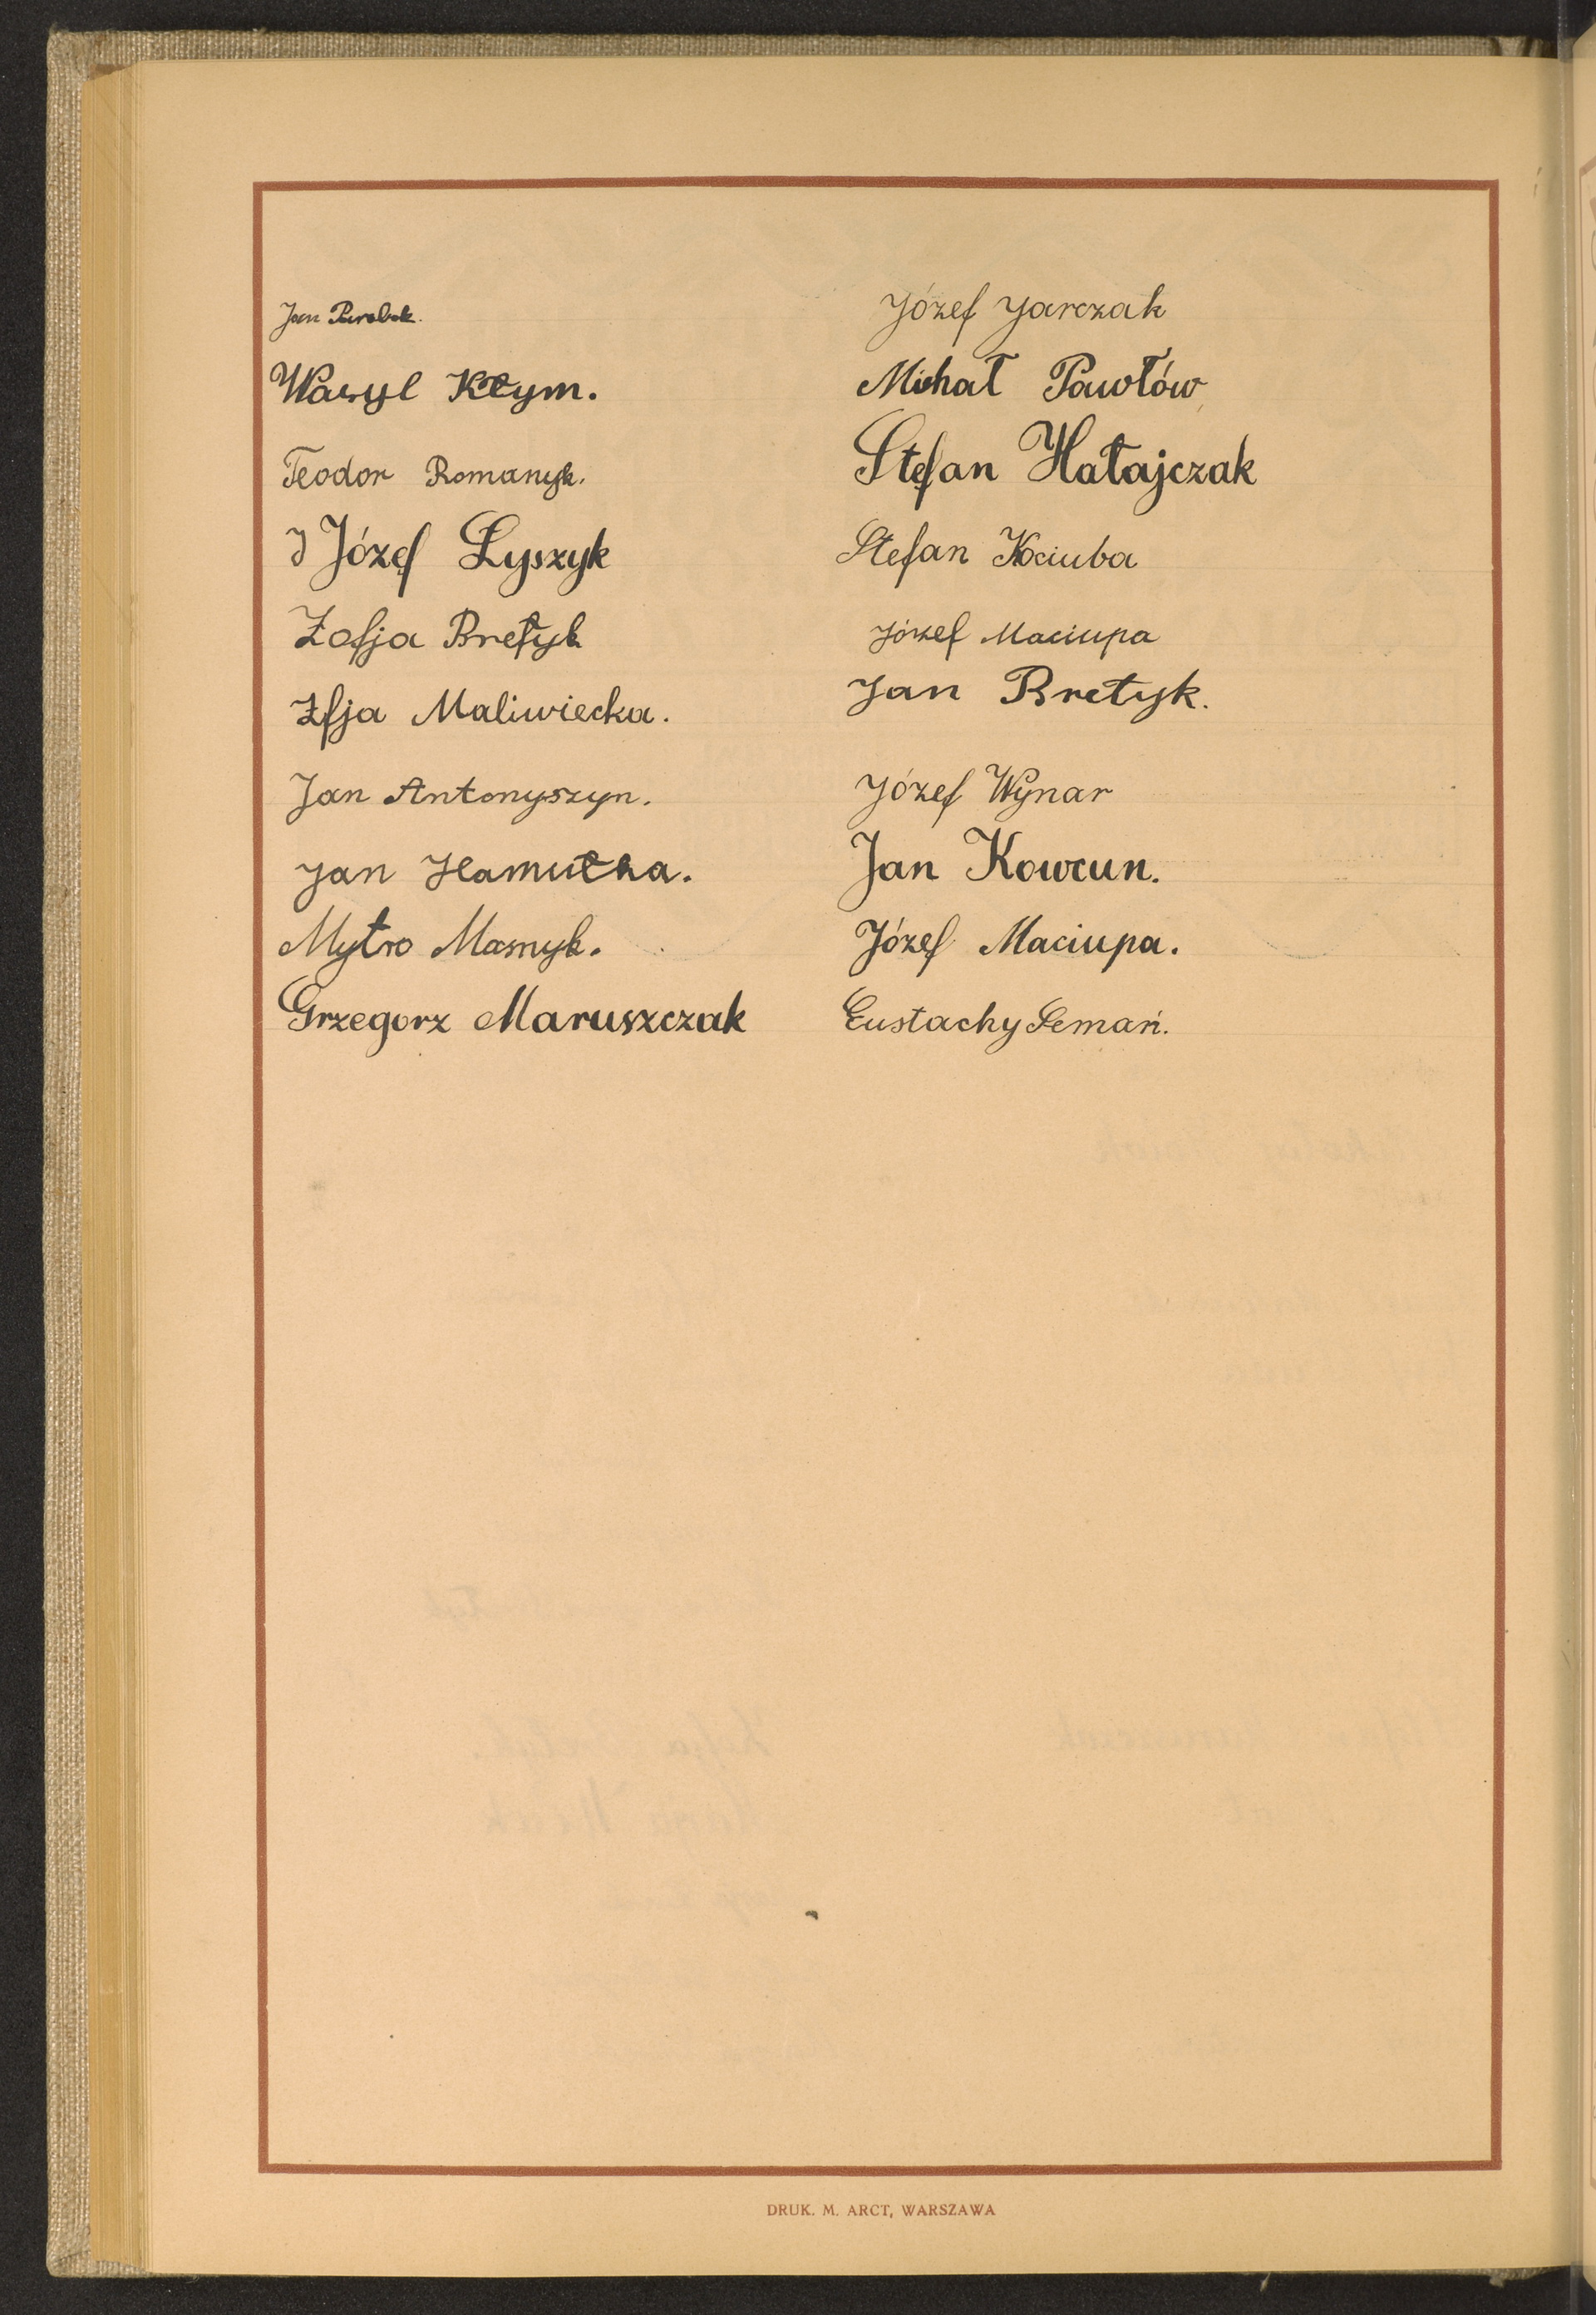 Jan Parobok.
Wasyl Kłym.
Teodor Romanyk.
J Józef Łyszyk
Zofja Bretyk
Zfja Maliwiecka.
Jan Antonyszyn.
Jan Hamułka.
Mytro Masnyk.
Grzegorz Maruszczak
Józef Jarczak
Michał Pawłów
Stefan Hałajczak
Stefan Kociuba
Józef Maciupa
Jan Bretyk.
Józef Wynar
Jan Kowcun.
Józef Maciupa.
Eustachy Semań.
DRUK. M. ARCT, WARSZAWA